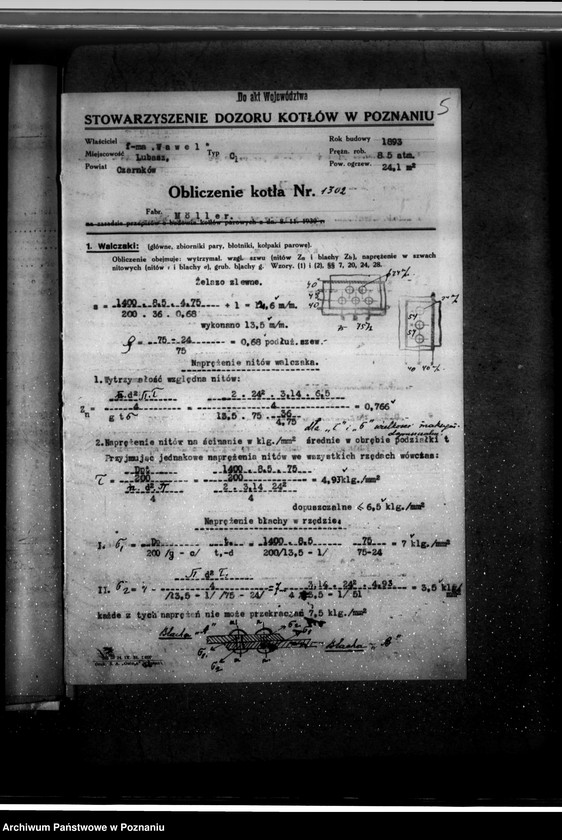 Do akt Województwa
5
STOWARZYSZENIE DOZORU KOTŁÓW W POZNANIU
Właściciel f-ma „Wawel"
Miejscowość Lubasz, Typ C1
Powiat Czarnków
Rok budowy 1893
Pręžn. rob. 8.5 atm.
Pow. ogrzew. 24,1 m²
Obliczenie kotła Nr. 1302
Fabr. Möller.
1. Walczaki: (główne, zbiorniki pary, błotniki, kołpaki parowe).
Obliczenie obejmuje: wytrzymał. wzgl. szwu (nitów Zn i blachy Zb), naprężenie w szwach
nitowych (nitów τ i blachy σ), grub. blachy g. Wzory. (1) i (2). §§ 7, 20, 24, 28.
Żelazo zlewne.
s = 1400 . 8.5 . 4.75 / 200 . 36 . 0,68 + 1 = 12,6 m/m.
wykonano 13,5 m/m.
φ = 75 - 24 / 75 = 0,68 podłuż.szew.
Naprężenie nitów walczaka.
1. Wytrzymałość względna nitów:
Zn = n.d².π.τ / 4 / g t σ = 2 . 24² . 3,14 . 6,5 / 4 / 13,5 . 75 . 36 / 4,75 = 0,766
2. Naprężenie nitów na ścinanie w klg./mm² średnie w obrębie podziałki t
Przyjmując jednakowe naprężenia nitów we wszystkich rzędach wówczas:
τ = Dpt / 200 / n d² π / 4 = 1400 . 8.5 . 75 / 200 / 2 . 3,14 24² / 4 = 4,93 klg./mm²
dopuszczalne < 6,5 klg./mm²
Naprężenie blachy w rzędzie:
I. σ1 = Dp / 200 /g - c/ t. / t.-d = 1400 . 8.5 / 200/13,5 - 1/ 75 / 75-24 = 7 klg./mm²
II. σ2 = 7 - π d² τ. / 4 / /13,5 - 1/ /75 - 24/ = 7 - 3,14 . 24² . 4,93 / 4 /13,5 - 1/ 51 = 3,5 klg/mm²
każde z tych naprężeń nie może przekraczać 7,5 klg./mm²
Blacha „A"
σ2
σ1
Blacha „B"
σ1
σ2
Archiwum Państwowe w Poznaniu